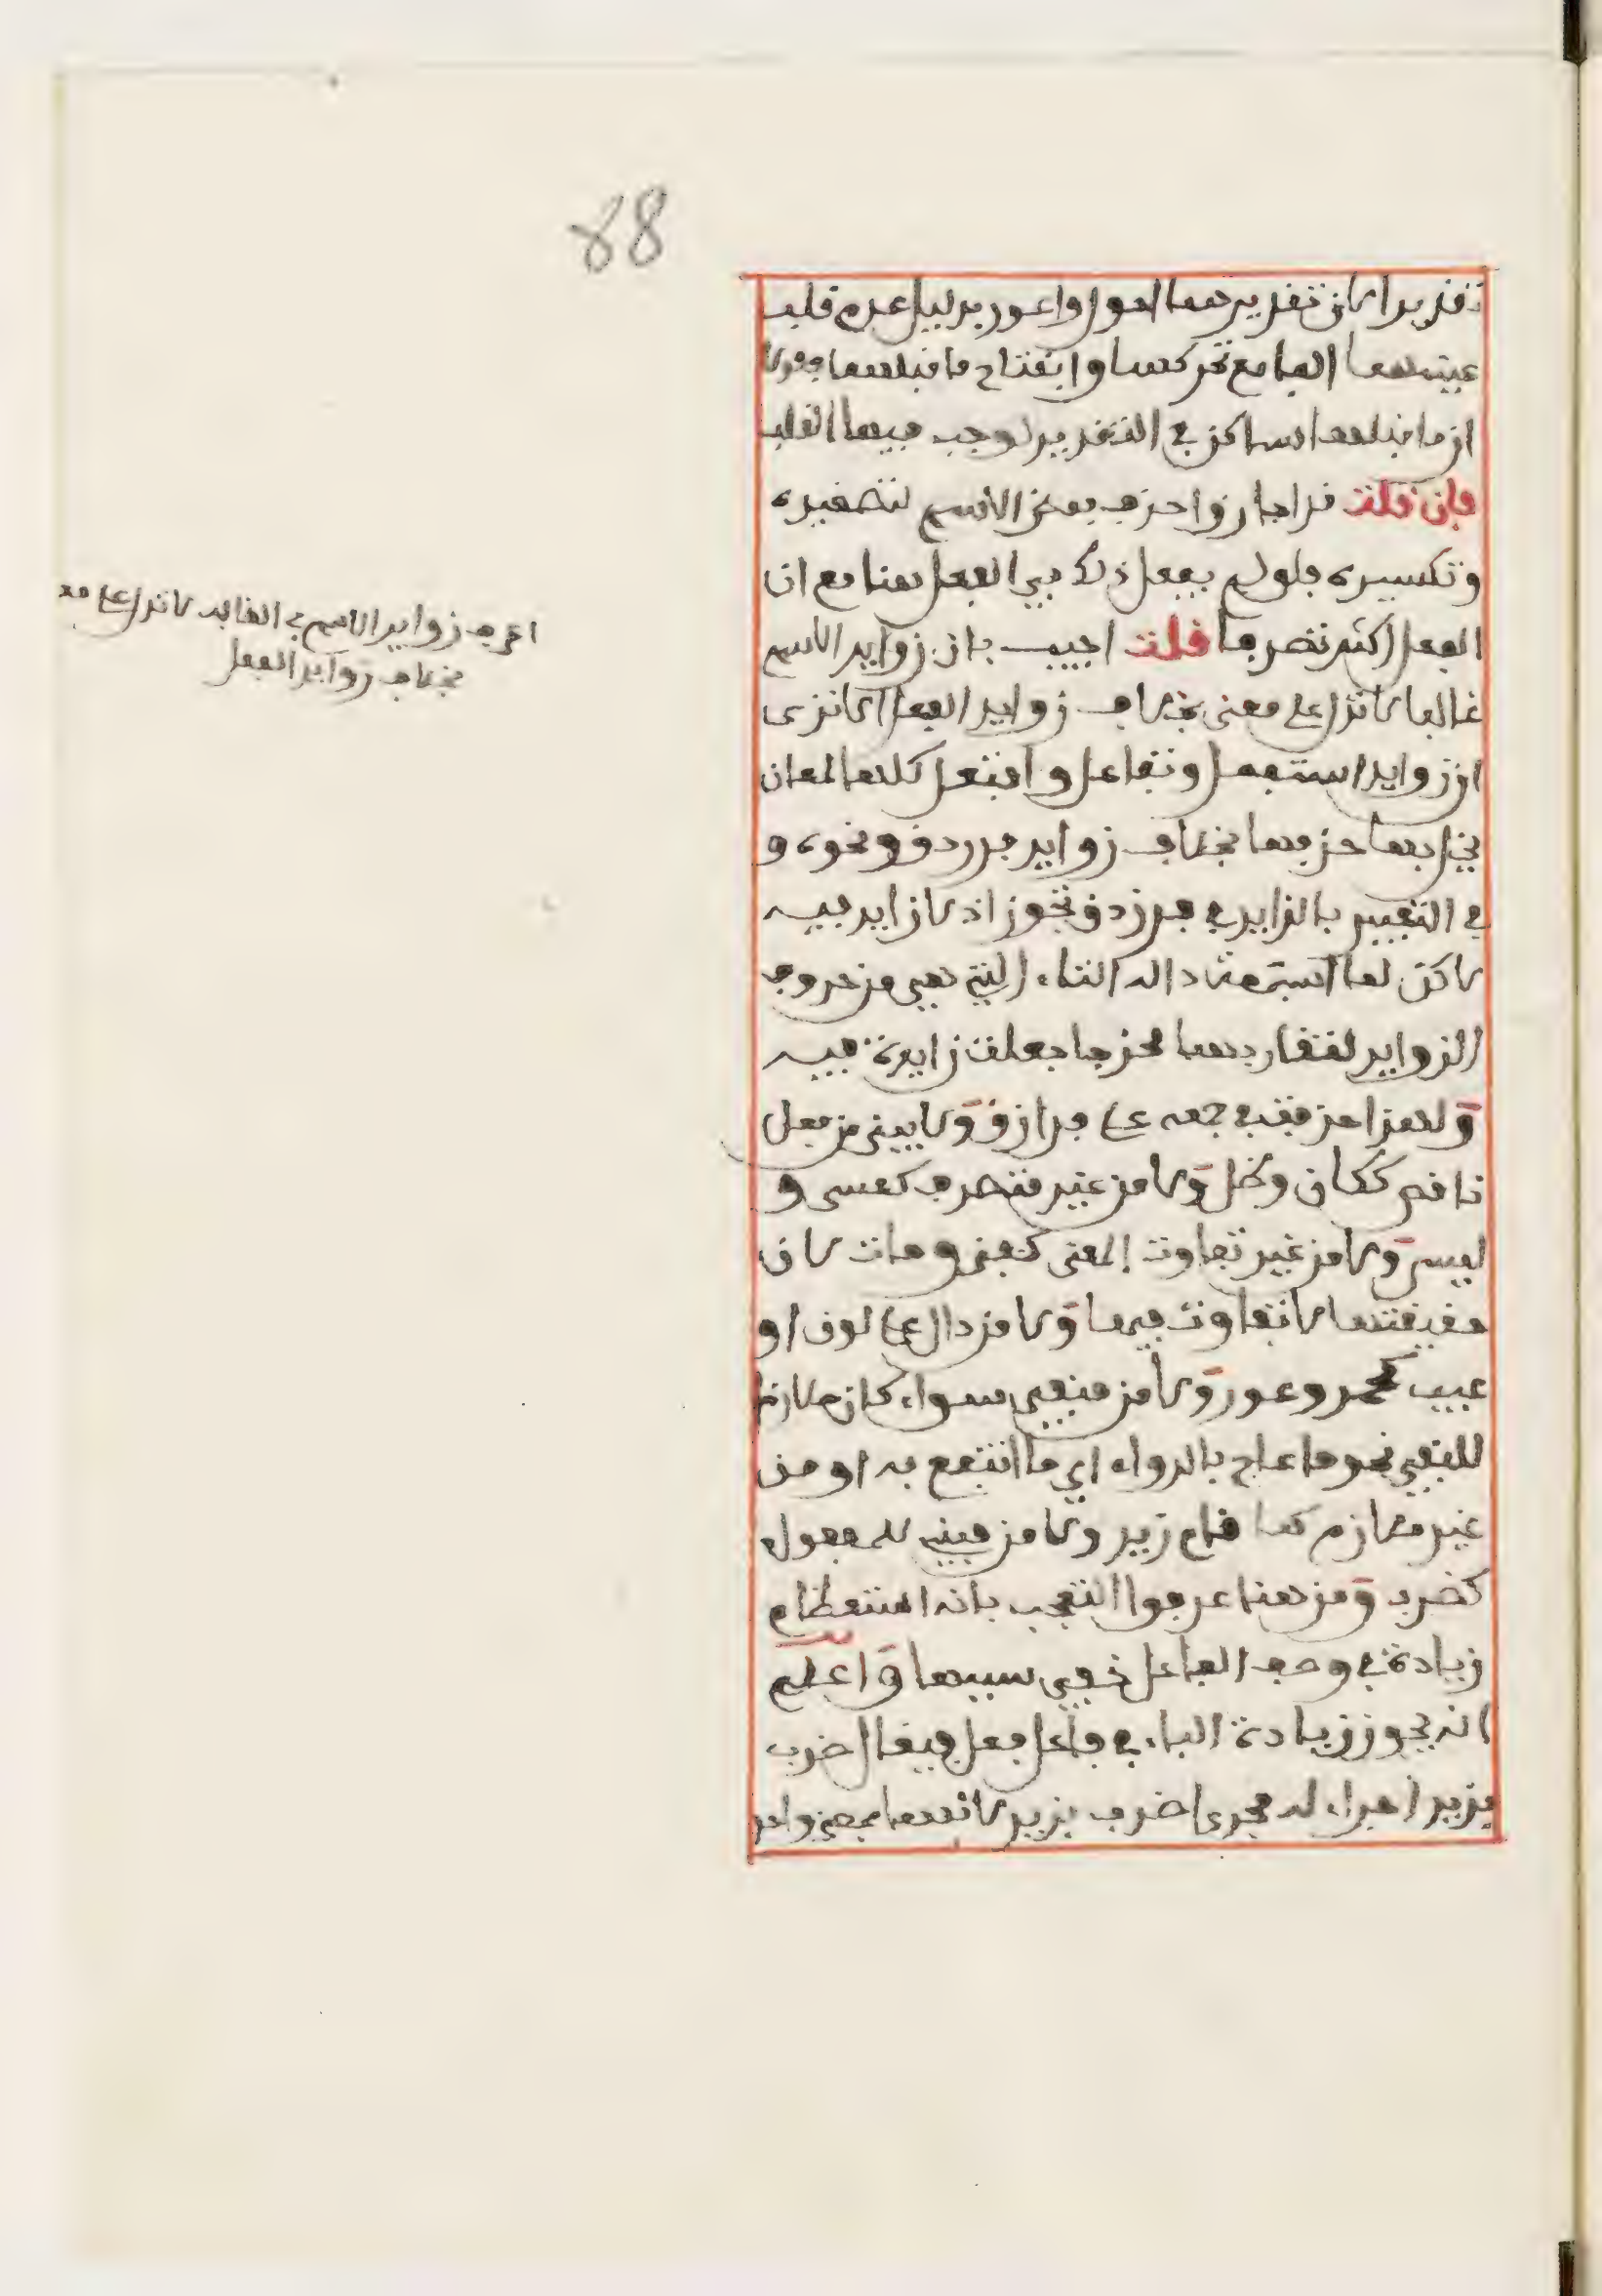 88
تقديرا لان تقديرهما احول واعور بدليل عدم قلب
عينهما الفا مع تحركهما وانفتاح ما قبلهما فلولا
ان ما قبلهما ساكن في التقدير لوجب فيهما القلب
فإن قلت قد اجازوا حذف بعض الاسم لتصغيره
وتكسيره فلو لم يفعل ذلك في الفعل هنا مع ان
الفعل اكثر تصرفا قلت اجيب بان زوايد الاسم
غالبا لا تدل على معنى بخلاف زوايد الفعل الا ترى
ان زوايد استفعل وتفاعل وافتعل كلها لمعان
يخل بها حذفها بخلاف زوايد فرزدق ونحوه و
في التعبير بالزايد في فرزدق تجوز اذ لا زايد فيه
لاكن لما اشبهت داله التاء التي هي من حروف
الزوايد لتقاربهما مخرجا جعلت زايدة فيه
ولهذا حذفت في جمعه على فرازق ولا يبنى من فعل
ناقص ككان وظل ولا من غير متصرف كعسى و
ليس ولا من غير تفاوت المعنى كفنى ومات لان
حقيقتهما لا تفاوت فيها ولا من دال على لون او
عيب كحمر وعور ولا من منفي سواء كان ملازما
للنفي نحو ما عاج بالدواء اي ما انتفع به او من
غير ملازم كما قام زيد ولا من مبني للمفعول
كضرب ومن هنا عرفوا التعجب بانه استعظام
زيادة في وصف الفاعل خفي سببها واعلم
انه يجوز زيادة الباء في فاعل فعل فيقال ضرب
بزيد اجراء له مجرى اضرب بزيد لانهما بمعنى واحد
اعرف زوايد الاسم في الغالب لا تدل على مع
بخلاف زوايد الفعل